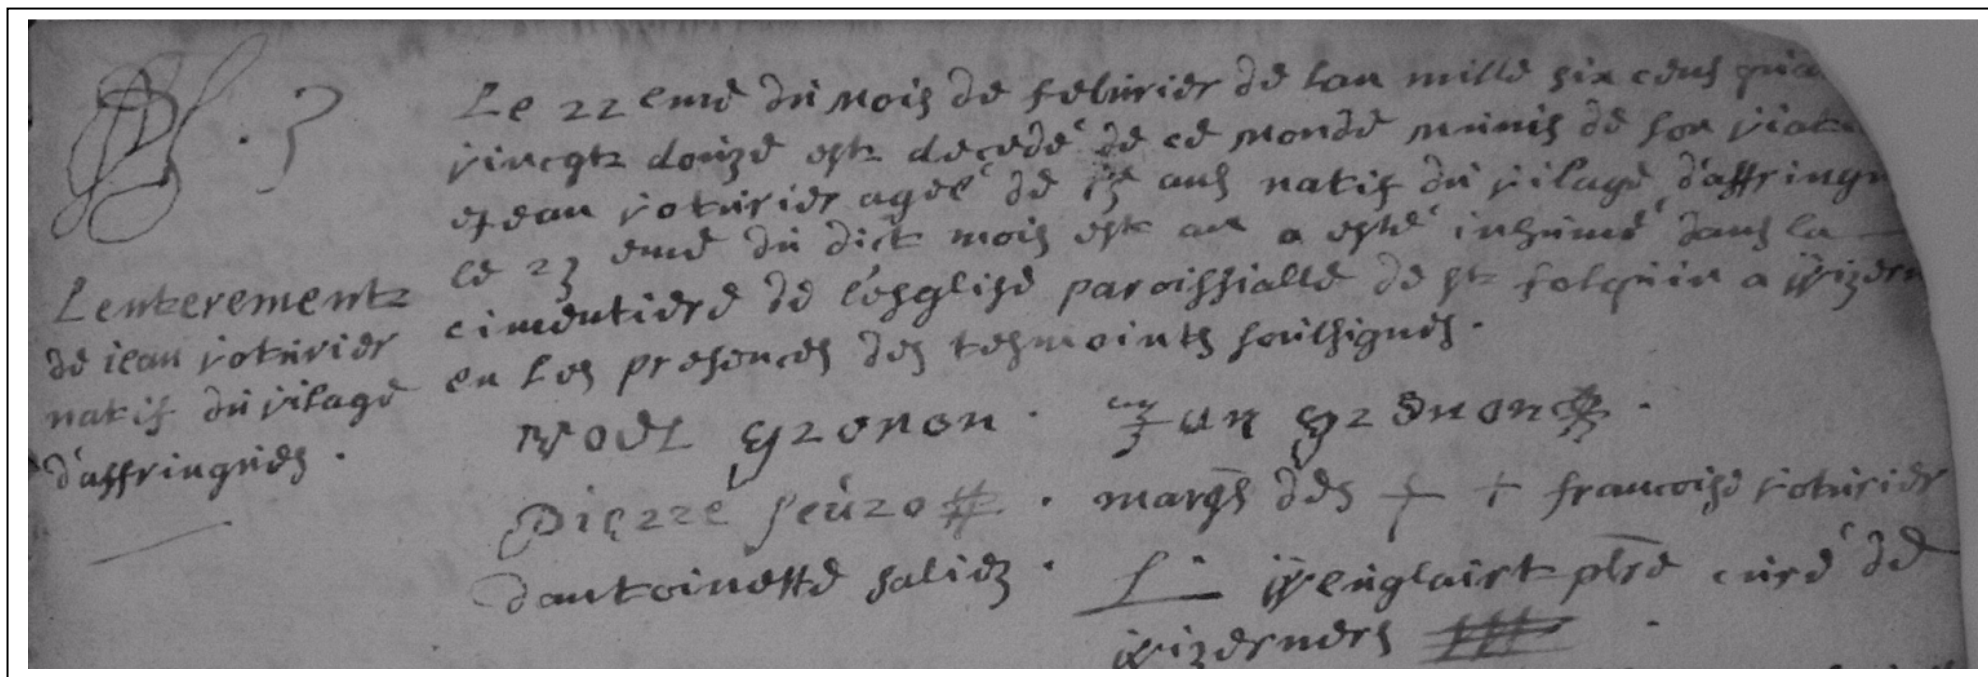 Lenterementz
de iean voturier
natif du vilage
d'affringues .
Le 22 eme du mois de febvrier de lan mille six cens qua
vincgtz douze est decede de ce monde munis de son viat
Jean voturier ageé de ans natif du vilage d'affringu
le 23 eme du dict mois est an a esté inhumé dans la
cimentiere de l'esglise paroissialle de st folquin a wizern
en les presences des tesmointz soulsignes .
noel grenon . Jan grenon .
Pierre . marqs des + + francoise voturier
d'antoinette . L : Wenglairt pbre curé de
wizernes